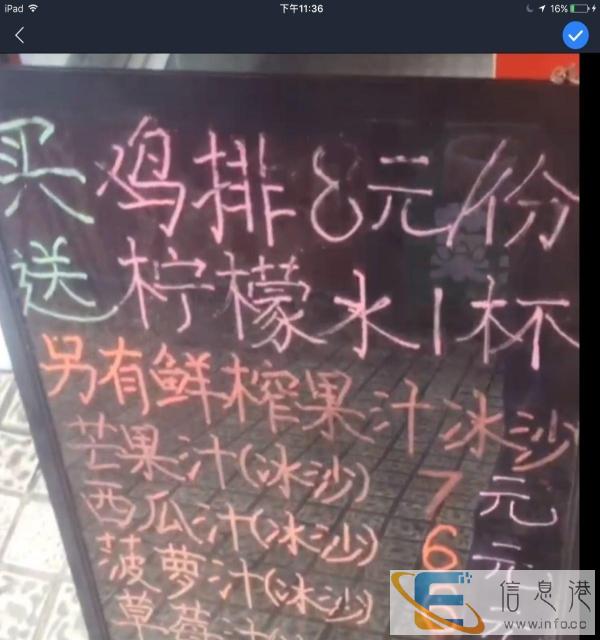 iPad 下午11:36 16%
买鸡排8元/份
送柠檬水1杯
另有鲜榨果汁冰沙
芒果汁(冰沙) 7元
西瓜汁(冰沙) 6元
菠萝汁(冰沙)
草莓汁
信息港
www.info.cc